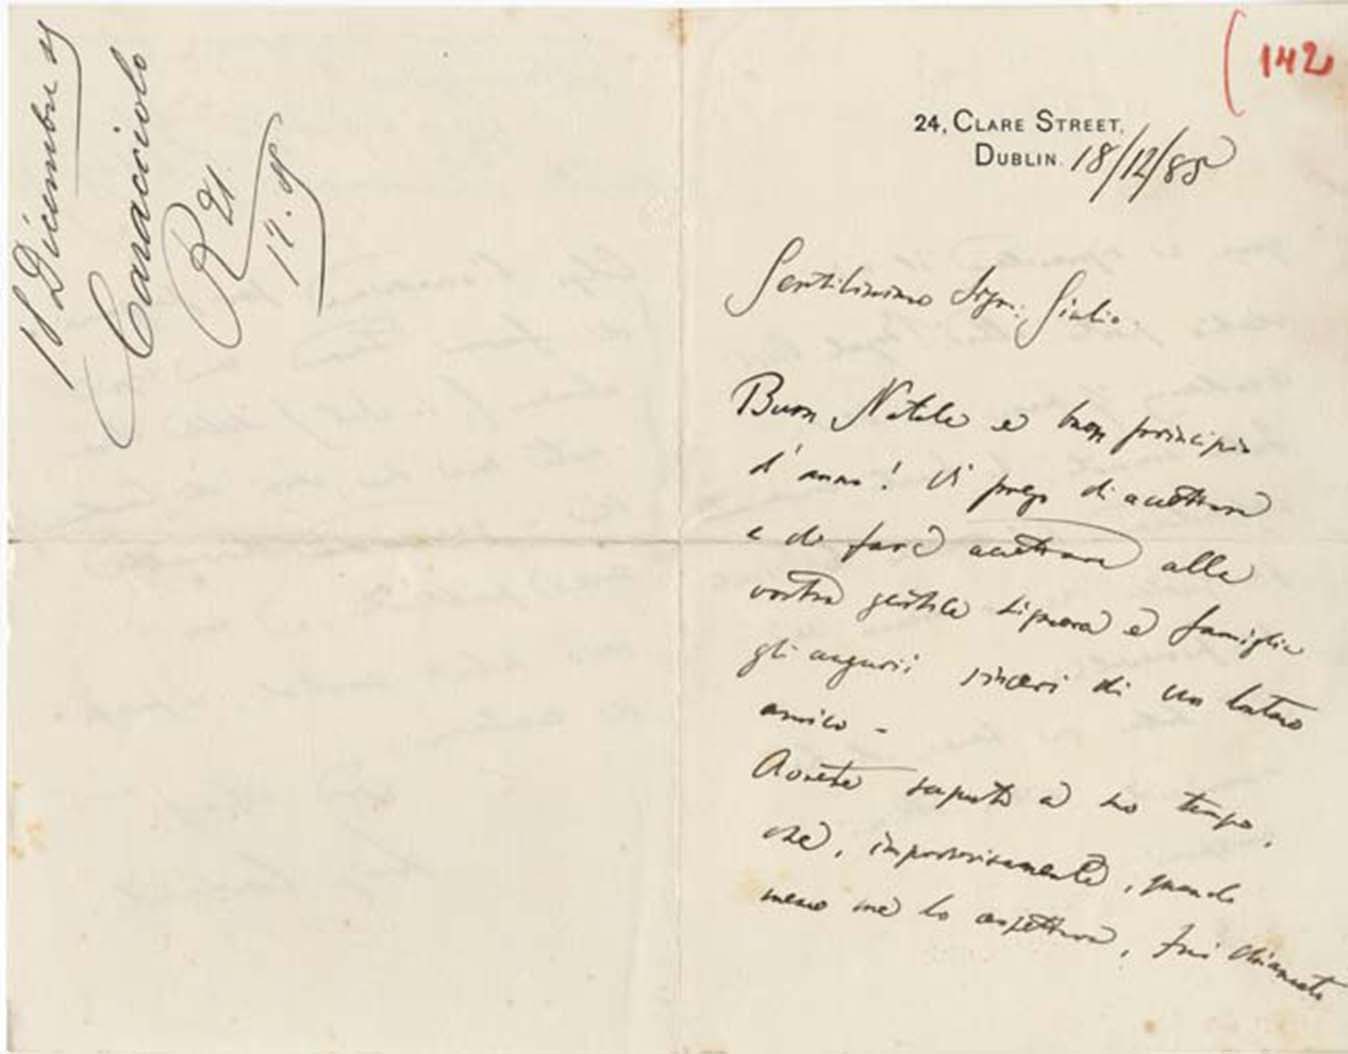 18 Dicembre 85
Caracciolo
R 21
12. 85
(142
24, CLARE STREET,
DUBLIN. 18/12/85
Gentilissimo Sigr: Giulio.
Buon Natale e buon principio
d'anno! Vi prego di accettare
e di fare accettare alla
vostra gentile signora e famiglia
gli augurii sinceri di un lontano
amico -
Avrete saputo a suo tempo,
che, improvvisamente, quando
meno me lo aspettavo, fui chiamato